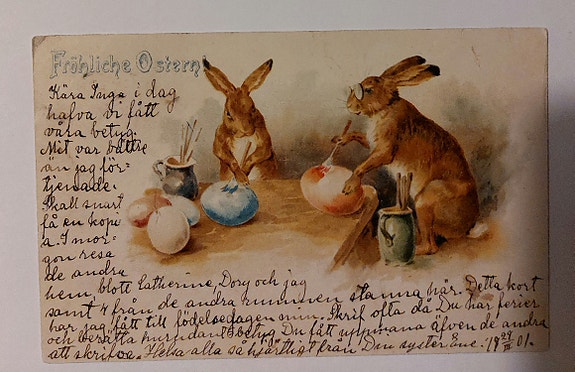 Fröhliche Ostern!
Kära Inga i dag
hafva vi fått
våra betyg.
Mit var bättre
än jag för-
tjenade.
Skall snart
få en kopi
a. I mor-
gon resa
de andra
hem, blott Catherine, Dory och jag
samt 4 från de andra rummen stanna här. Detta kort
har jag fått till födelsedagen min. Skrif ofta då Du har ferier
och berätta hurudant betyg Du fått uppmana äfven de andra
att skrifva. Helsa alla så hjärtligt från Din syster Ene. 19 29/III 01.